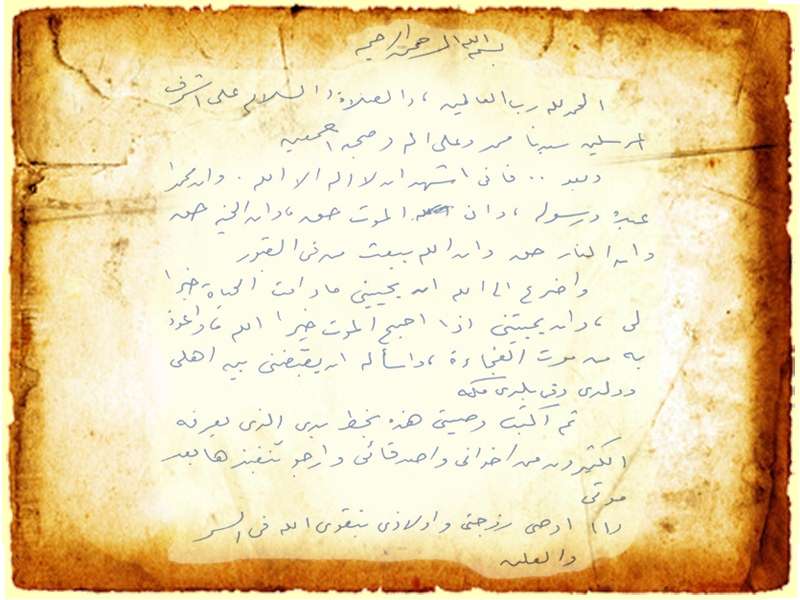 بسم الله الرحمن الرحيم
الحمد لله رب العالمين، والصلاة والسلام على اشرف
المرسلين سيدنا محمد وعلى اله وصحبه اجمعين
وبعد .. فانى اشهد ان لا اله الا الله . وان محمدا
عبده ورسوله ، وان الموت حق ، وان الجنة حق
وان النار حق وان الله يبعث من فى القبور
واضرع الى الله ان يحيينى ما دامت الحياة خيرا
لى ، وان يميتنى اذا اصبح الموت خيرا الله ، واعوذ
به من موت الفجاءة ، واسأله ان يقبضنى بين اهلى
وولدى وفى بلدى مكة
ثم اكتب وصيتى هذه بخط يدى الذى يعرفه
الكثيرون من اخوانى واصدقائى وارجو تنفيذها بعد
موتى
(١) اوصى زوجتى واولادى بتقوى الله فى السر
والعلن